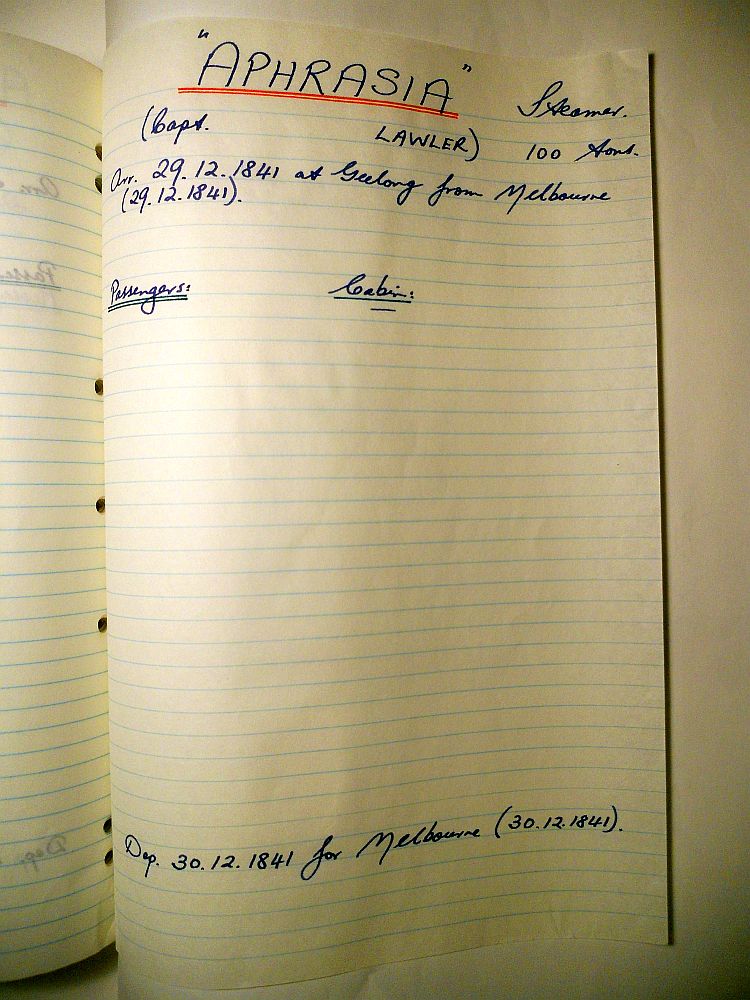 "APHRASIA" Steamer.
(Capt. LAWLER) 100 tons.
Arr. 29.12.1841 at Geelong from Melbourne
(29.12.1841).
Passengers: Cabin:
Dep. 30.12.1841 for Melbourne (30.12.1841).